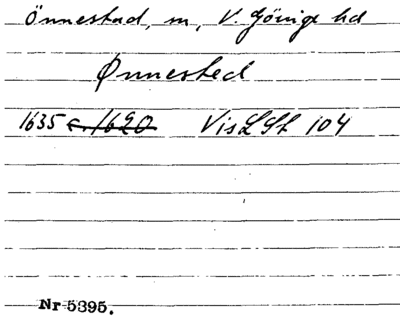 Önnestad, sn, V. Göinge hd
Ønnested
1635 c. 1620 VisLSt 104
Nr 5395.